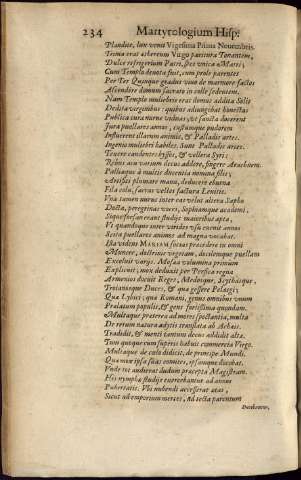 234 Martyrologium Hisp:
Plaudite, lux venit Vigesima Prima Novembris.
Trima erat æthereum Virgo paritura Tonantem,
Dulce refrigerium Patri, spes unica Matri;
Cum Templo devota fuit, cum prole parentes
Per Ter Quinque gradus vivo de marmore factos
Ascendere domum sacrato in colle sedentem.
Nam Templo muliebris erat domus addita Solis
Dedita virginibus: quibus adiungebat honestas
Publica cura nurus viduas, ut sancta docerent
Jura puellares annos, castumque pudorem
Instruerent illarum animis, & Palladis artes.
Ingenio muliebri habiles. Sunt Palladis artes.
Texere candentes byssos, & vellera Syri:
Rebus acu varium decus addere, fingere Arachnem.
Palliaque à multis docentia nomina filis;
Artifici plumare manu, deducere eburna
Fila colu, sacras vestes factura Levitis.
Una tamen nurus inter erat velut altera Sapho
Docta, peregrinas vices, Sophiamque academi,
Supra sexum erant studijs maioribus apta,
Ut quandoque inter virides usu exenit annos
Scita puellares animos ad magna vocabat.
Ista videns MARIAM socias præcedere in omni
Munere, doctrinis vegetam, docilemque puellam
Excoluit varijs. Mosæa volumina primùm
Explicuit; mox deduxit per Persica regna
Armenios docuit Reges, Medosque, Scythasque,
Troianosque Duces, & quæ gessere Pelasgi:
Qua Lybies, qua Romani, genus omnibus unum
Prælatum populis, & gens fortissima quondam.
Multaque præterea ad mores spectantia, multa
De rerum natura adytis translata ab Achais.
Tradidit, & menti tantum decus addidit alta.
Tum quoque cum superis habuit commercia Virgo.
Multaque de cælo didicit, de principe Mundi.
Quæ nunc ipsa suas comites, ipsamque docebat.
Unde eæ auderat dudum præcepta Magistram.
His nympha studijs exercebantur ad annos
Pubertatis. Ubi nubendi accesserat ætas,
Sicut ad temporium merces, ad tecta parentum